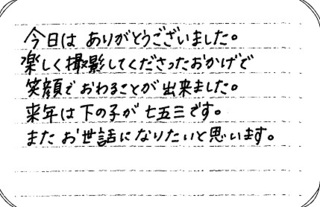 今日は ありがとうございました。
楽しく撮影してくださったおかげで
笑顔でおわることが出来ました。
来年は下の子が七五三です。
またお世話になりたいと思います。